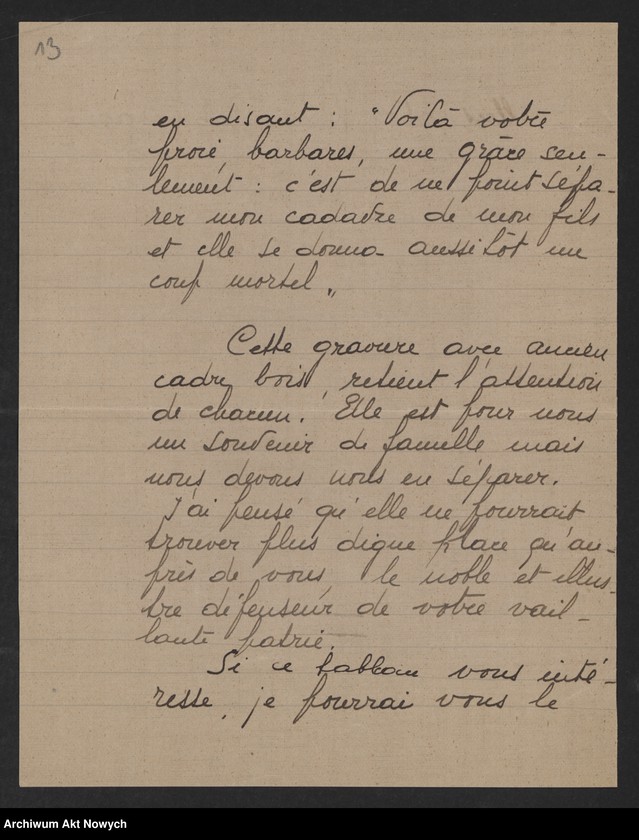 13
en disant : "Voilà votre
proie, barbares, une grâce seu-
lement : c'est de ne point sépa-
rer mon cadavre de mon fils
et elle se donna aussitôt un
coup mortel "
Cette gravure avec ancien
cadre bois, retient l'attention
de chacun. Elle est pour nous
un souvenir de famille mais
nous devons nous en séparer.
J'ai pensé qu'elle ne pourrait
trouver plus digne place qu'au-
près de vous, le noble et illus-
tre défenseur de votre vail-
lante patrie.
Si ce tableau vous inté-
resse, je pourrai vous le
Archiwum Akt Nowych